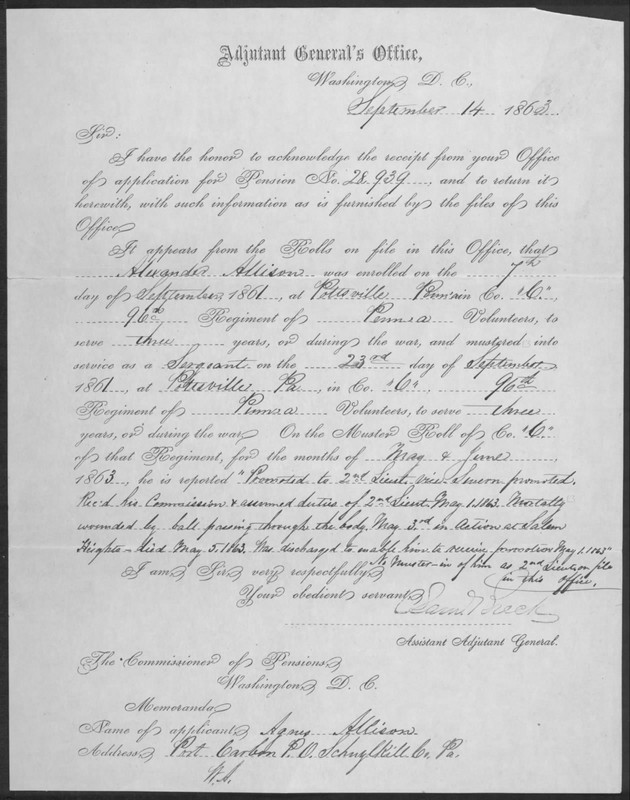 Adjutant General's Office,
Washington, D. C.,
September 14 1863
Sir:
I have the honor to acknowledge the receipt from your Office
of application for Pension No. 28.939, and to return it
herewith, with such information as is furnished by the files of this
Office.
It appears from the Rolls on file in this Office, that
Alexander Allison was enrolled on the 7th
day of September, 1861, at Pottsville Penn'a in Co. "C",
96th Regiment of Penn'a Volunteers, to
serve three years, or during the war, and mustered into
service as a Sergeant on the 23rd day of September
1861, at Pottsville Pa, in Co. "C", 96th
Regiment of Penn'a Volunteers, to serve three
years, or during the war. On the Muster Roll of Co. "C"
of that Regiment, for the months of May & June,
1863, he is reported "Promoted to 2nd Lieut. vice Severn promoted.
Rec'd his Commission & assumed duties of 2nd Lieut. May 1. 1863. Mortally
wounded by ball passing through the body, May 3rd in Action at Salem
Heights - died May 5, 1863. Was discharged to enable him to receive promotion May 1. 1863"
No Muster-in of him as 2nd Lieut on file
in this office.
I am, Sir, very respectfully,
Your obedient servant,
Sam Breck
Assistant Adjutant General.
The Commissioner of Pensions,
Washington, D. C.
Memoranda
Name of applicant, Agnes Allison.
Address, Port Carbon P.O. Schuylkill Co. Pa.